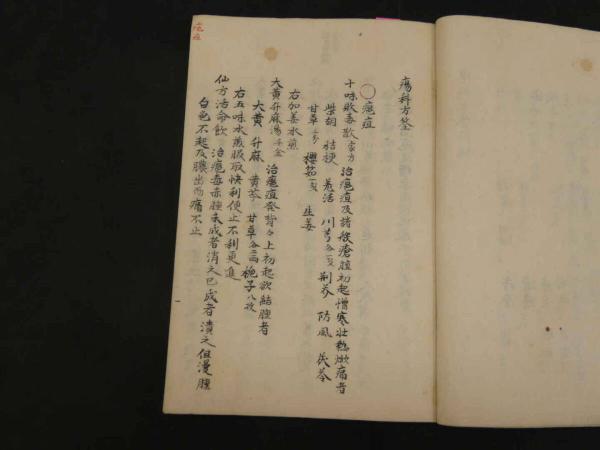 瘍科方筌
瘡疽
十味敗毒散 家方 治瘡疽及諸般瘡腫初起憎寒壮熱焮痛者
柴胡 桔梗 羌活 川芎 各一戔 荊芥 防風 茯苓
甘草 五分 櫻茹 一戔 生姜
右加姜水煎
大黄升麻湯 千金 治瘡疽発背々上初起欲結腫者
大黄 升麻 黄芩 甘草 各二両 梔子 八枚
右五味水煮服取快利便止不利更進
仙方活命飲 治瘡毒赤腫未成者消之已成者潰之但漫腫
白色不起及膿出而痛不止